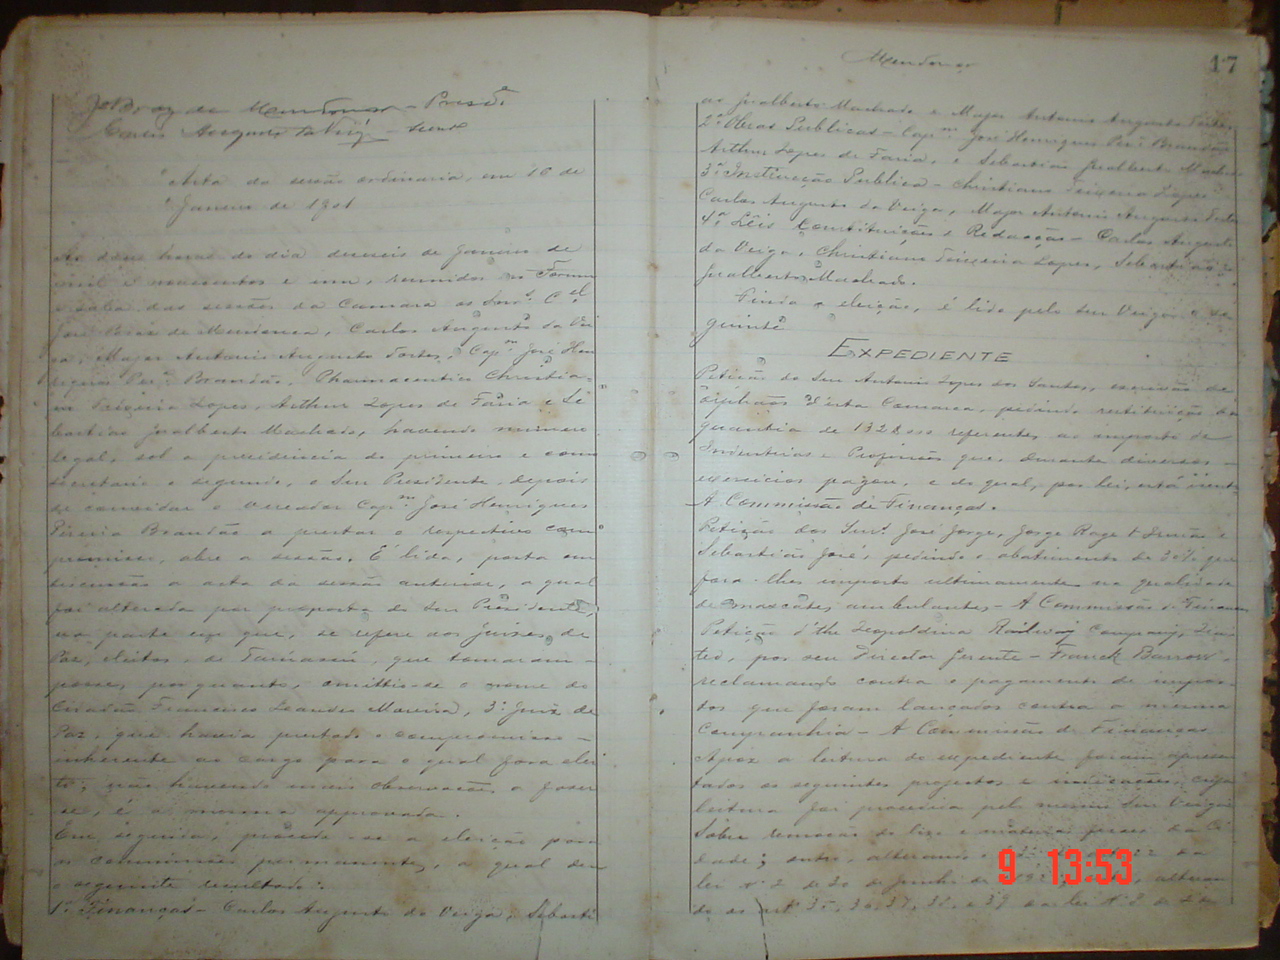 José Braz de Mendonça - Presid.e
Carlos Augusto da Veiga - Secr
Acta da sessão ordinaria, em 16 de
Janeiro de 1901
horas do dia deseseis de Janeiro de
mil e novecentos e um, reunidos no Forum
e salla das sessões da Camara os Snrs. C.el
José Braz de Mendonça, Carlos Augusto da Vei
ga, Major Antonio Augusto Fortes, Cap.m José Hen
riques Per.a Brandão, Pharmaceutico Christia-
no Teixeira Lopes, Arthur Lopes de Faria e Se
bastião Jualberto Machado, havendo numero
legal, sob a presidencia do primeiro e como
secretario o segundo, o Snr Presidente, depois
de convidar o vereador Cap.m José Henriques
Pereira Brandão a prestar o respectivo com
promisso, abre a sessão. É lida, posta em
discussão a acta da sessão anterior, a qual
foi alterada por proposta do Snr Presidente,
na parte em que, se refere aos juises de
Paz, eleitos, de que tomaram -
posse, porquanto, omittio-se o nome do
cidadão Francisco Leandro Moreira, 3º Juiz de
Paz, que havia prestado o compromisso -
inherente ao cargo para o qual fora elei
to; não havendo mais observações a faser
se, é a mesma approvada.
Em seguida, procede-se a eleição para
as commissões permanentes, a qual deu
o seguinte resultado:
1ª Finanças - Carlos Augusto da Veiga, Sebasti
Mendonça
17
ão Jualberto Machado e Major Antonio Augusto Fortes,
2ª Obras Publicas - Cap.m José Henriques Per.a Brandão
Arthur Lopes de Faria, e Sebastião Jualberto Machado
3ª Instrucção Publica - Christiano Teixeira Lopes
Carlos Augusto da Veiga, Major Antonio Augusto Fortes
4ª Leis Constituições e Redacção - Carlos Augusto
da Veiga, Christiano Teixeira Lopes, Sebastião
Jualberto Machado.
Finda a eleição, é lido pelo Snr Veiga o se
guinte
EXPEDIENTE
Petição do Snr Antonio Lopes dos Santos, escrivão de
orphãos d'esta Comarca, pedindo restituição da
quantia de 132$000 referentes ao imposto de
Industrias e Profissões que, durante diversos -
exercicios pagou, e do qual, por lei, está isento
A Commissão de Finanças.
Petição dos Snrs. José Jorge, Jorge Rage & Irmão e
Sebastião José, pedindo o abatimento de 30% que
fora-lhes imposto ultimamente na qualidade
de mascates ambulantes - A Commissão de Finanças
Petição d'The Leopoldina Railway Company, Limi
ted, por seu Director Gerente - Franck Barrow -
reclamando contra o pagamento de impos-
tos que foram lançados contra a mesma
Companhia - A Commissão de Finanças
Apoz a leitura do expediente foram apresen
tados os seguintes projectos e indicações, cuja
leitura foi procedida pelo mesmo Snr Veiga
Sobre remoção do lixo e materia fecaes da Ci
dade; outro, alterando
lei Nº 2 de 20 de Junho de 1892 alteran
do os art.s 35, 36, 37, 38 e 39 da lei Nº 2 de 20
9 13:53